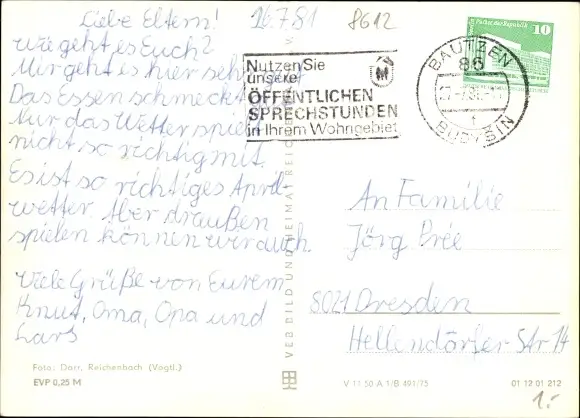 Liebe Eltern! 26.7.81 8612
wie geht es Euch?
Mir geht es hier sehr
Das Essen schmeckt
Nur das Wetter spielt
nicht so richtig mit.
Es ist so richtiges April-
wetter. Aber draußen
spielen können wir auch.
Viele Grüße von Eurem
Knut, Oma, Opa und
Lars
Foto: Darr, Reichenbach (Vogtl.)
EVP 0,25 M
Nutzen Sie
unsere
ÖFFENTLICHEN
SPRECHSTUNDEN
in Ihrem Wohngebiet
M
BAUTZEN
86
f
BUDYŠIN
Palast der Republik 10
VEB BILD UND HEIMAT REICHENBACH
An Familie
Jörg Prée
8021 Dresden
Hellendörfer Str 14
V 11 50 A 1/B 491/75 01 12 01 212
1.-